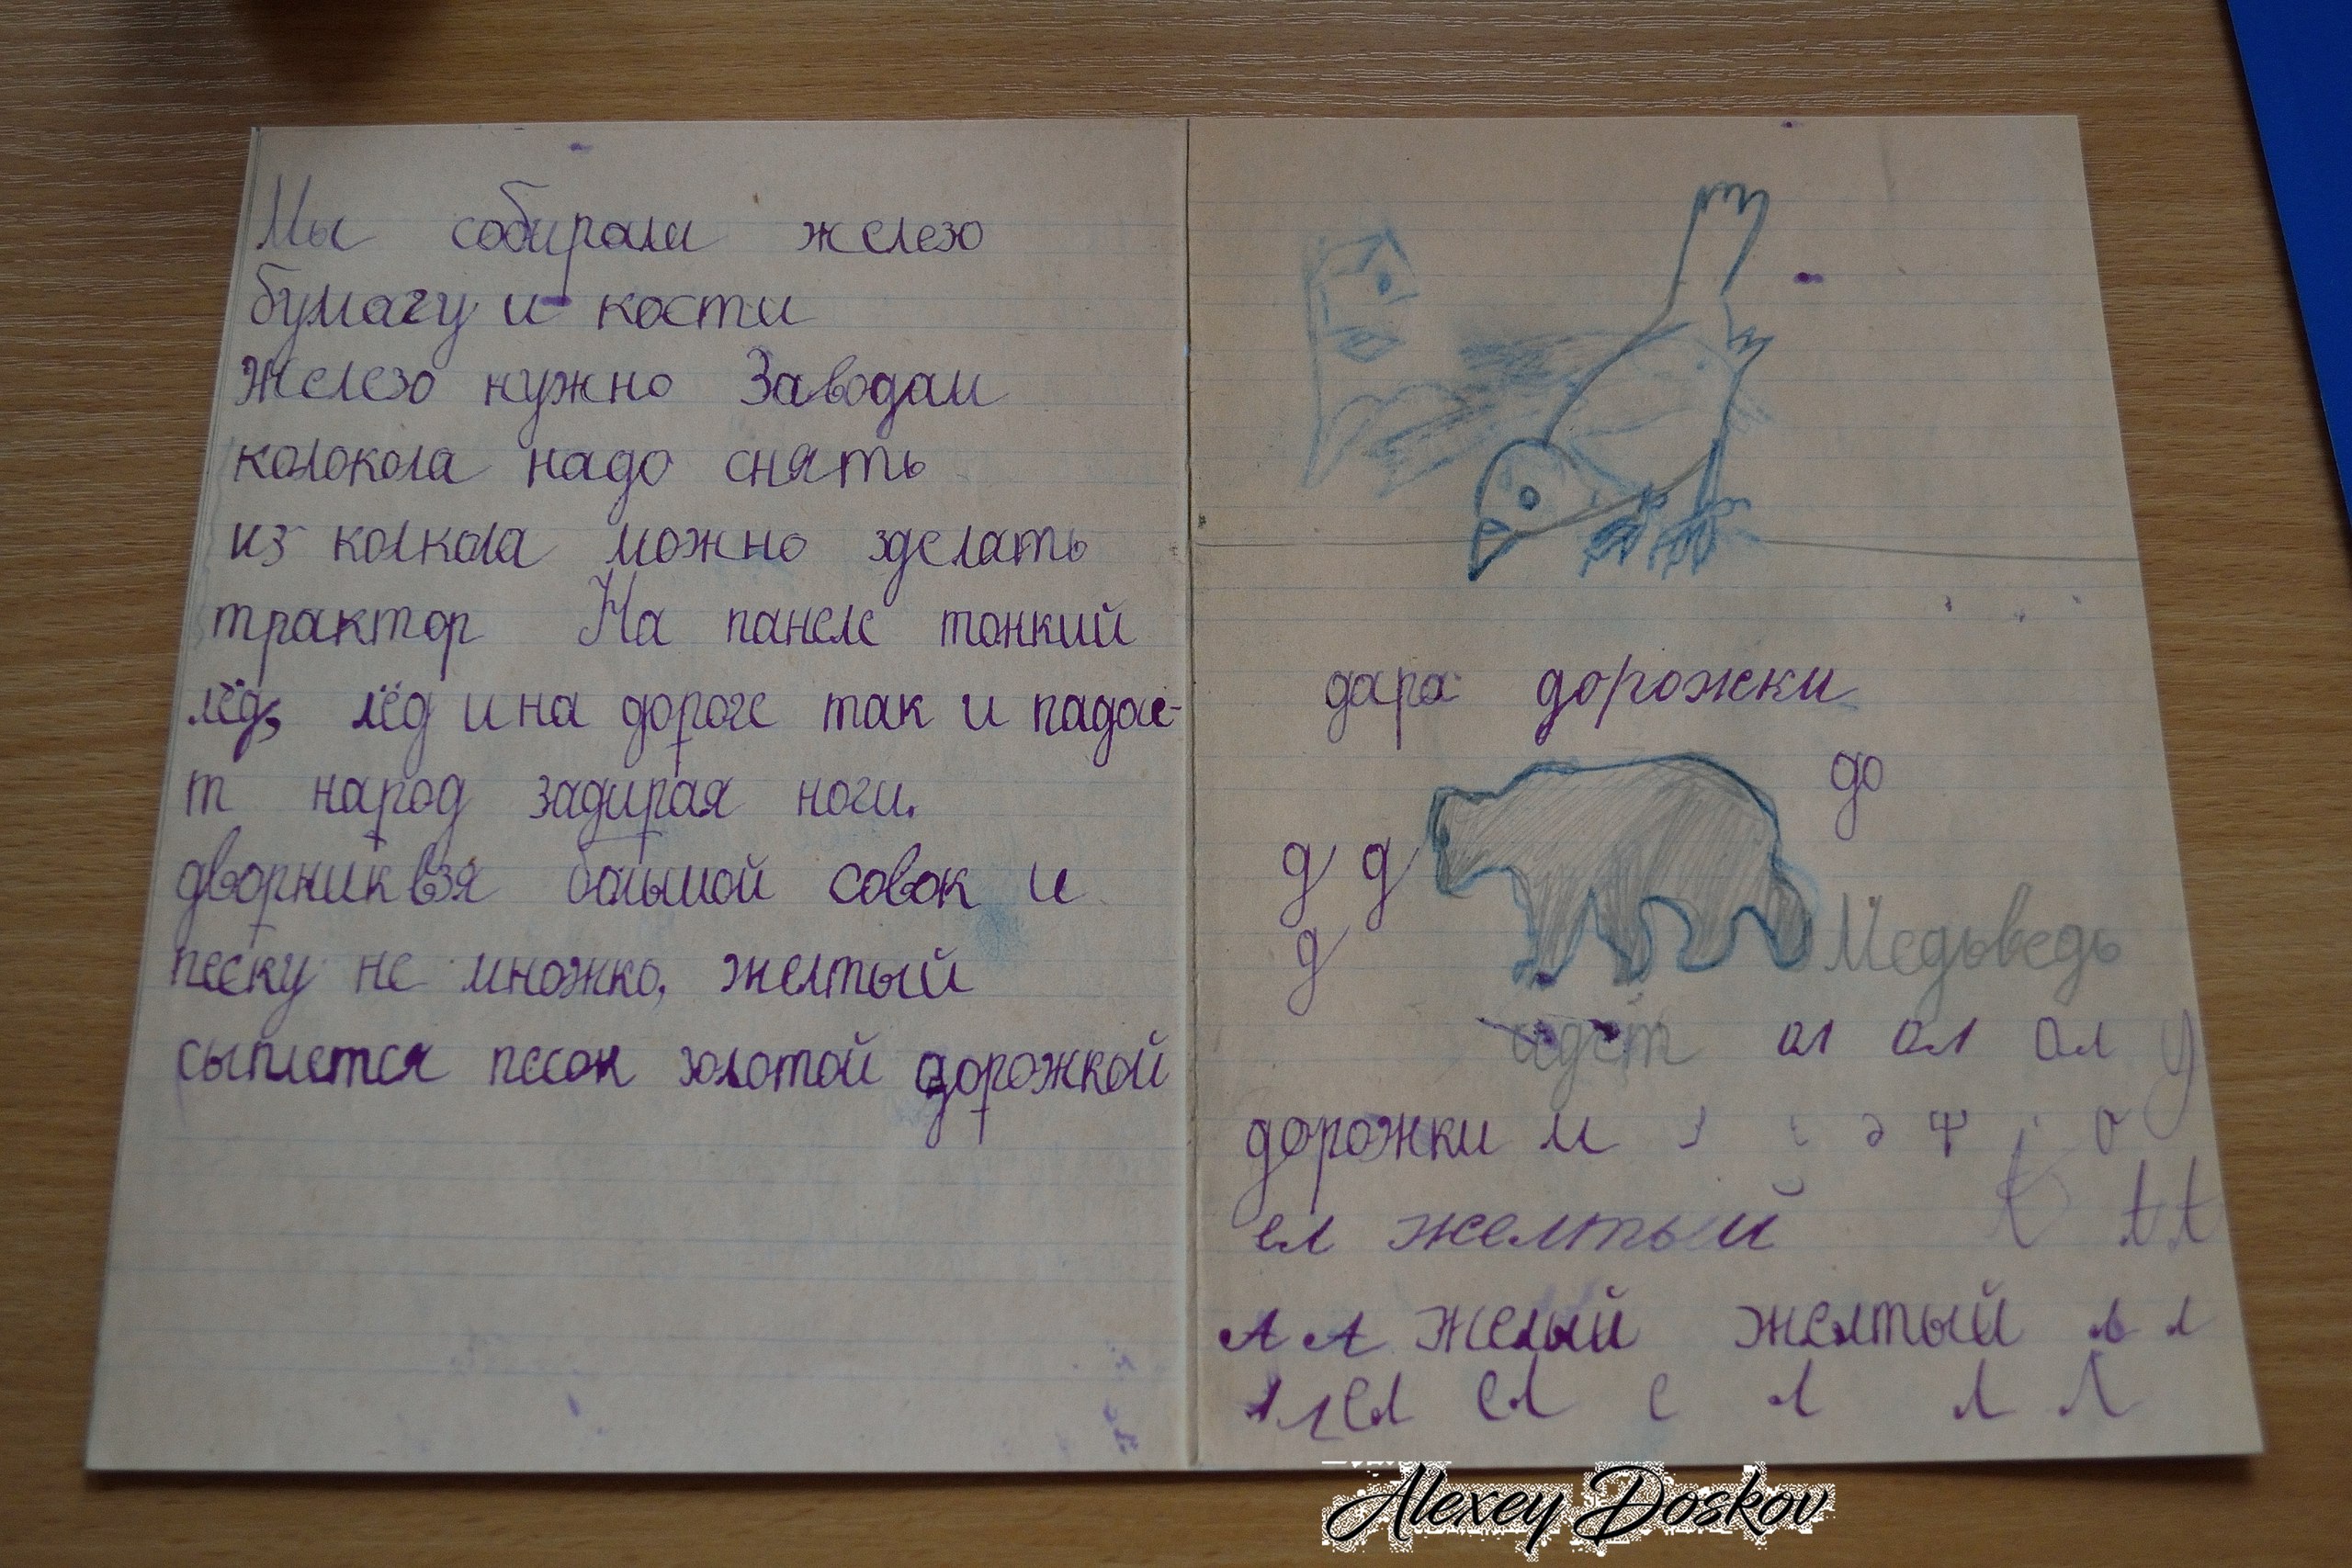 Мы собирали железо
бумагу и кости
Железо нужно Заводам
колокола надо снять
из колкола можно зделать
трактор На панеле тонкий
лёд, лёд и на дороге так и падае-
т народ задирая ноги.
дворник взя большой совок и
песку не множко, желтый
сыплется песок золотой дорожкой
дара дорожки
до
д д
д
Медьведь
идет ол ол ол у
дорожки и
ел желтый t t t
л л желый желтый л л
л л ел ел е л л л
Alexey Doskov